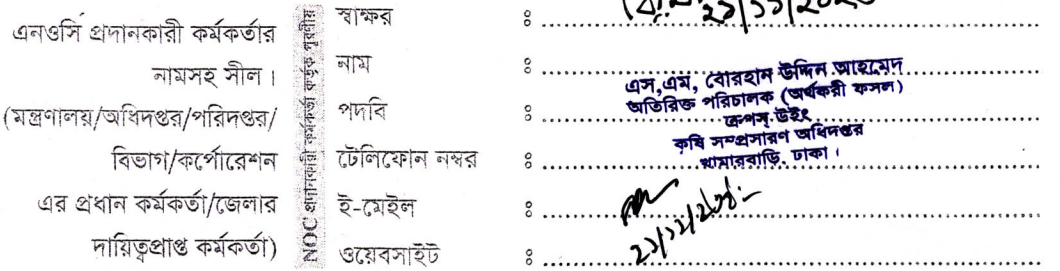 স্বাক্ষর ঃ
এনওসি প্রদানকারী কর্মকর্তার
নামসহ সীল।
(মন্ত্রণালয়/অধিদপ্তর/পরিদপ্তর/
বিভাগ/কর্পোরেশন
এর প্রধান কর্মকর্তা/জেলার
দায়িত্বপ্রাপ্ত কর্মকর্তা)
NOC প্রদানকারী কর্মকর্তা কর্তৃক পূরণীয়
নাম ঃ
পদবি ঃ
টেলিফোন নম্বর ঃ
ই-মেইল ঃ
ওয়েবসাইট ঃ
এস,এম, বোরহান উদ্দিন আহমেদ
অতিরিক্ত পরিচালক (অর্থকরী ফসল)
ক্রপস্ উইং
কৃষি সম্প্রসারণ অধিদপ্তর
খামারবাড়ি, ঢাকা।